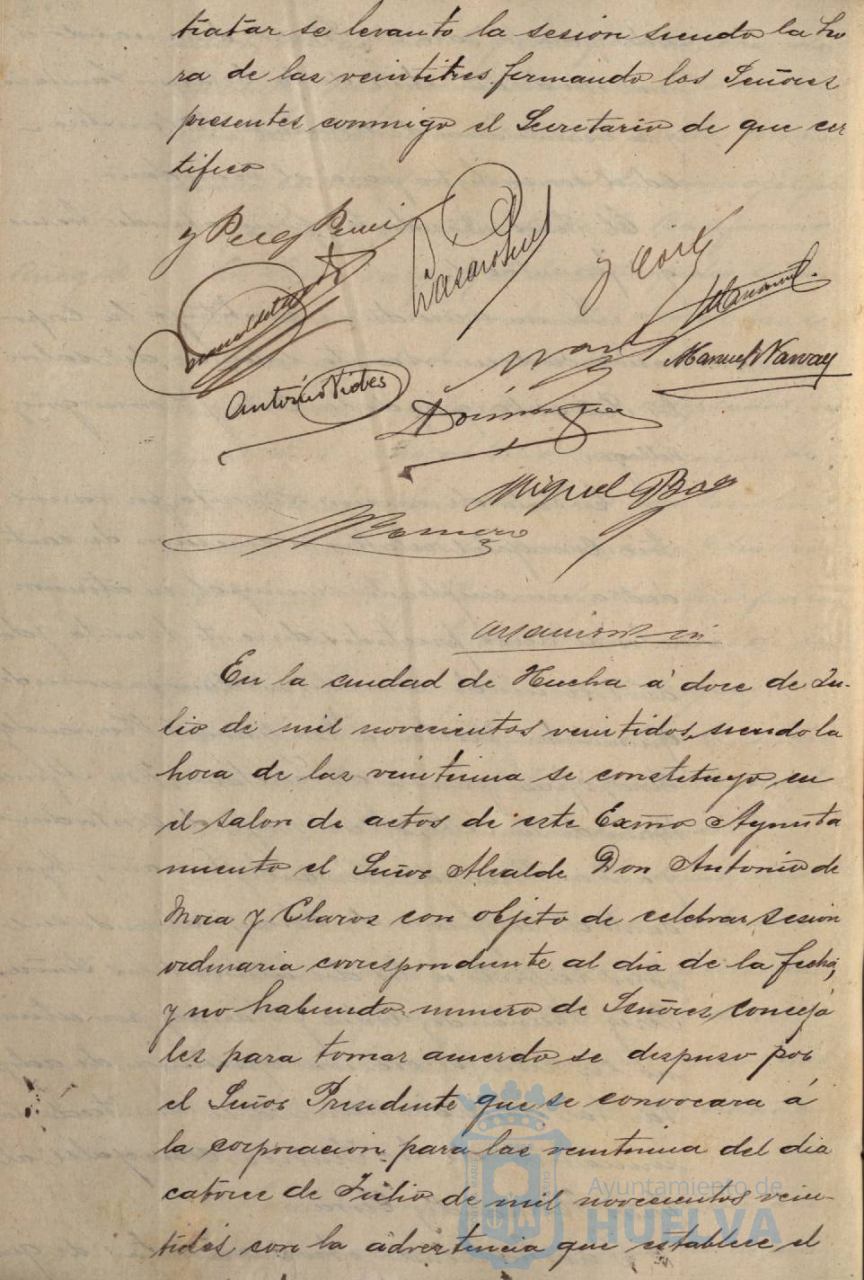 tratar se levanto la sesion siendo la ho
ra de las veintitres firmando los Señores
presentes conmigo el Secretario de que cer
tifico
Antonio Vides
Manuel Narvay
Dominguez
Miguel Bao
Romero
En la ciudad de Huelva á doce de Ju-
lio de mil novecientos veintidos, siendo la
hora de las veintiuna se constituyo en
el salon de actos de este Exmo Ayunta
miento el Señor Alcalde Don Antonio de
Mora y Claros con objeto de celebrar sesion
ordinaria correspondiente al dia de la fecha,
y no habiendo numero de Señores conceja
les para tomar acuerdo se dispuso por
el Señor Presidente que se convocara á
la corporacion para las veintiuna del dia
catorce de Julio de mil novecientos vein-
tidos con la advertencia que establece el
Ayuntamiento de
HUELVA